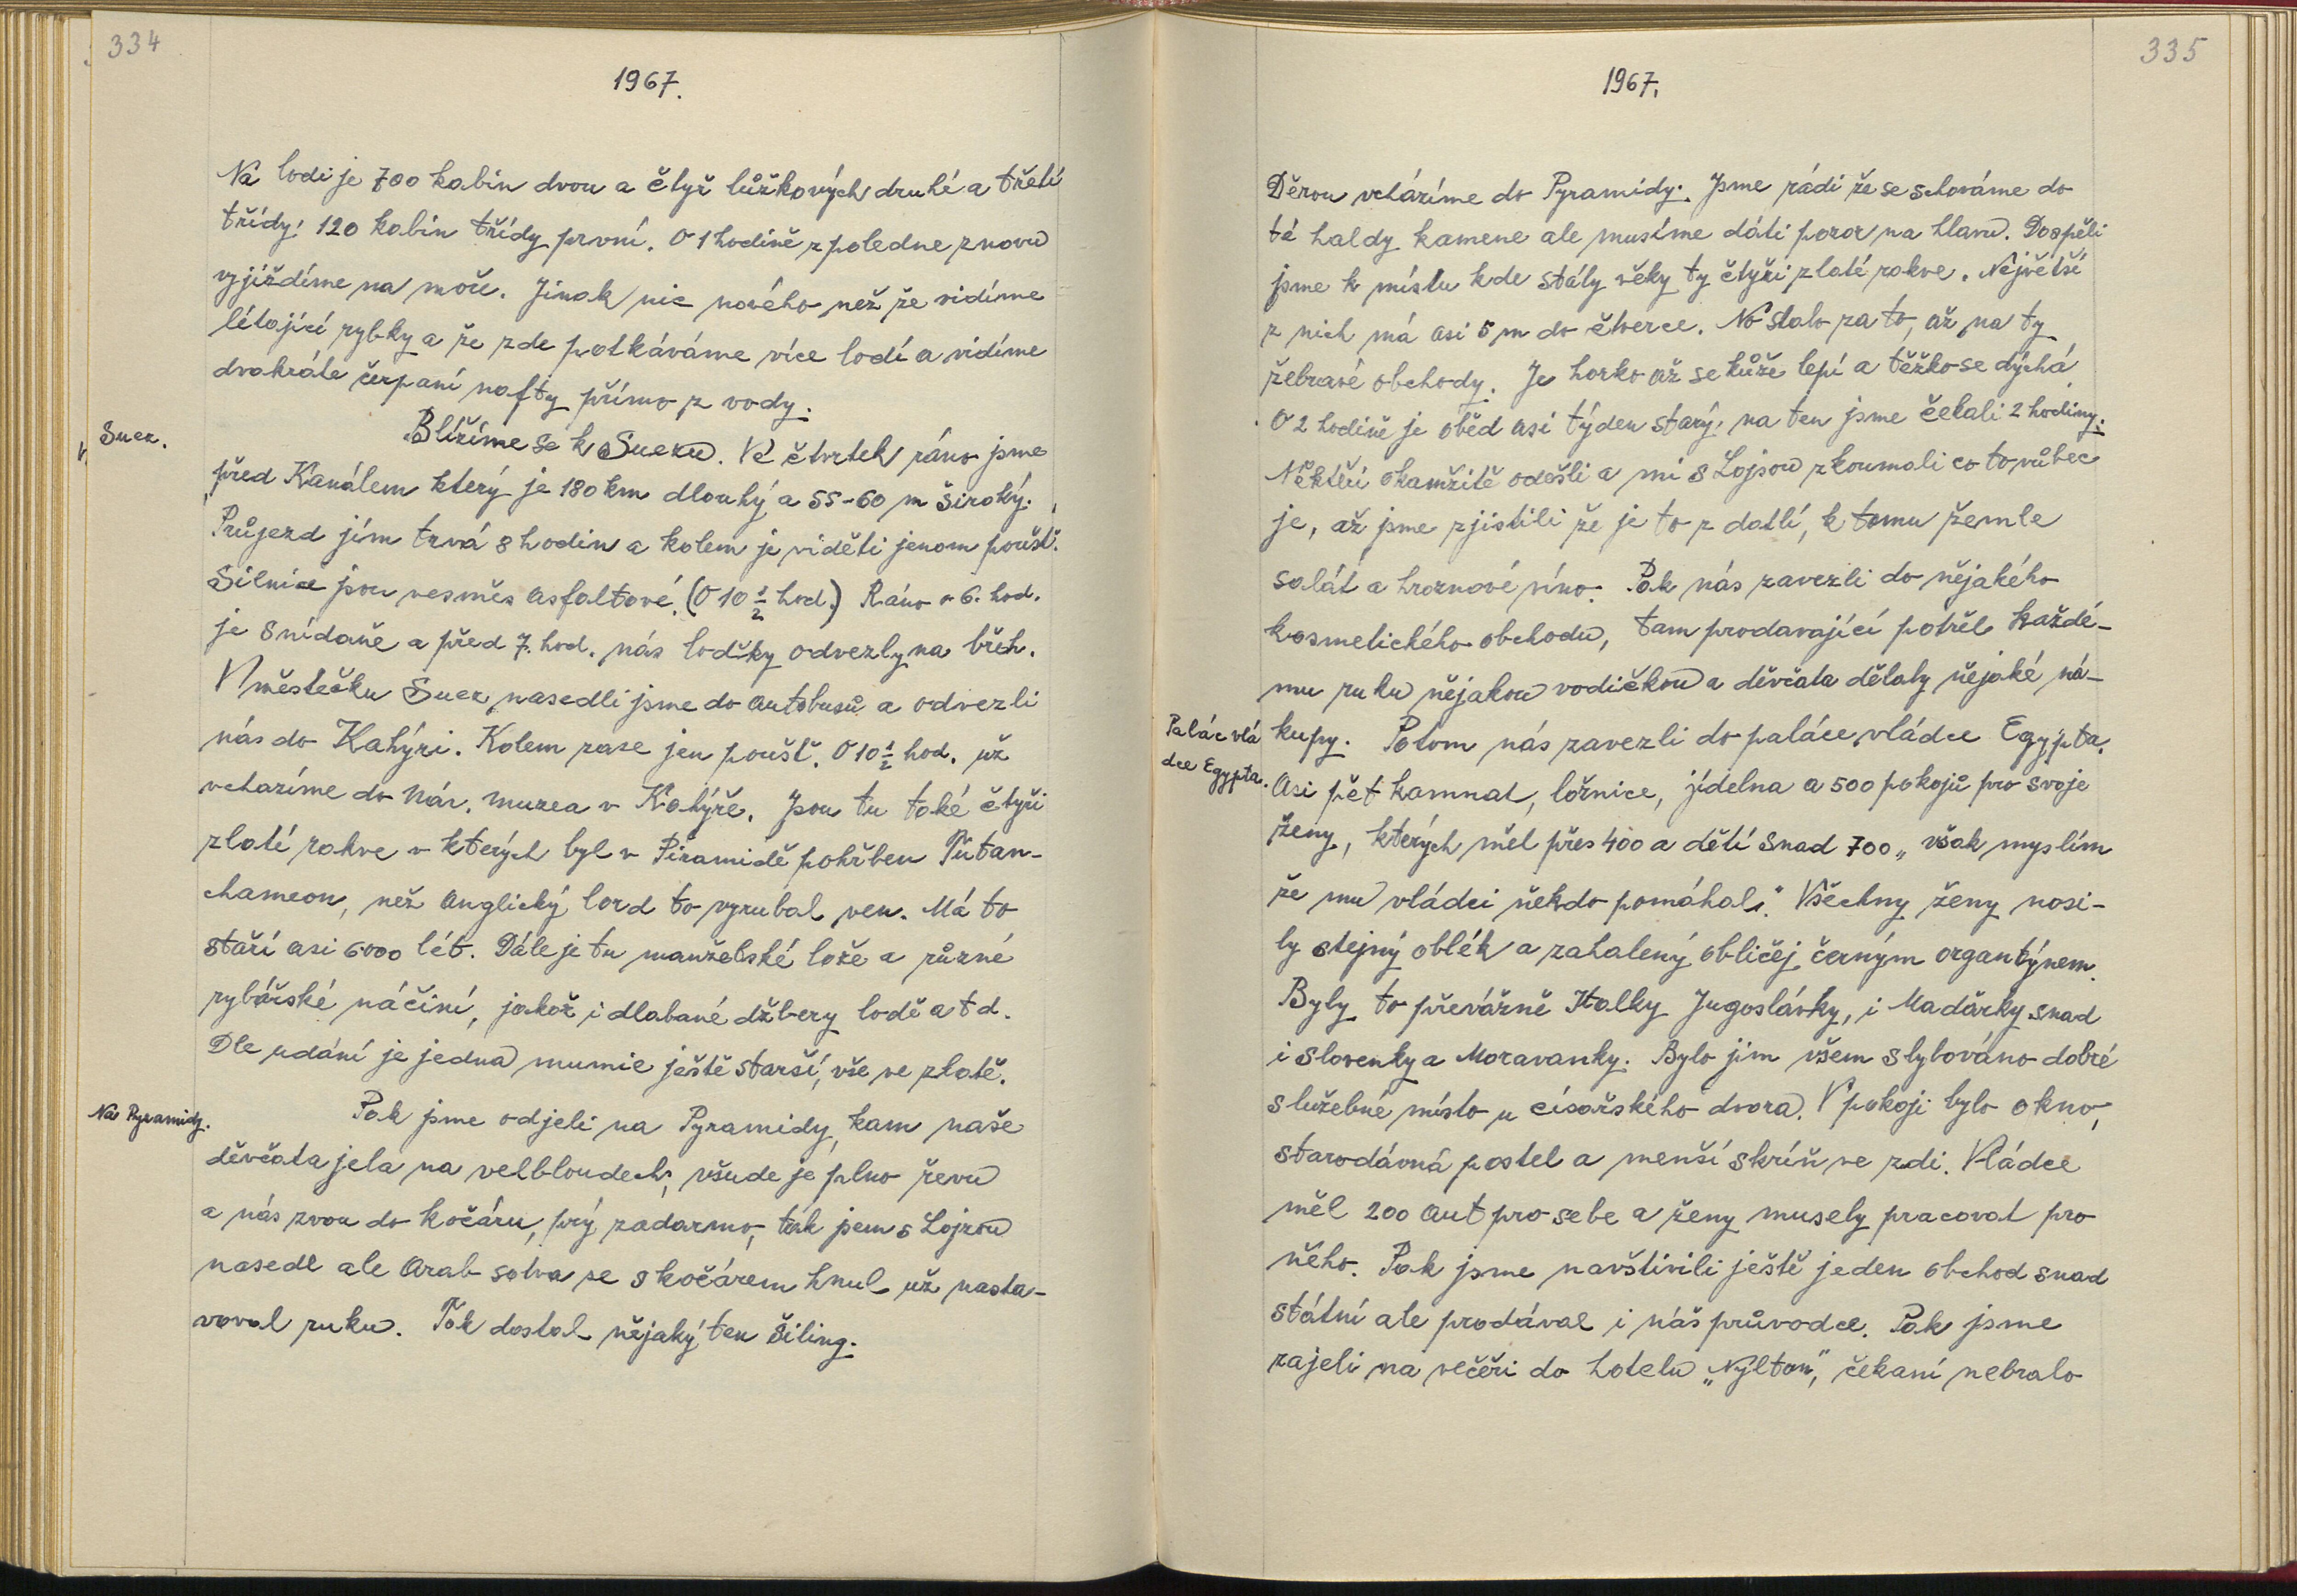 334
1967.
Na lodi je 700 kabin dvou a čtyř lůžkových druhé a třetí
třídy, 120 kabin třídy první. O 1 hodině z poledne znovu
vyjíždíme na moře. Jinak nic nového než že vidíme
létající rybky a že zde potkáváme více lodí a vidíme
dvakráte čerpaní nafty přímo z vody.
Suez.
Blížíme se k Suezu. Ve čtvrtek ráno jsme
před Kanálem který je 180 km dlouhý a 55-60 m široký.
Průjezd jím trvá 8 hodin a kolem je viděti jenom poušť.
Silnice jsou vesměs asfaltové. (O 10 1/2 hod.) Ráno o 6. hod.
je snídaně a před 7. hod. nás loďky odvezly na břeh.
V městečku Suez nasedli jsme do autobusů a odvezli
nás do Kahýri. Kolem zase jen poušť. O 10 1/2 hod. už
vcházíme do Nár. muzea v Kahýře. Jsou tu také čtyři
zlaté rakve v kterých byl v Piramidě pohřben Tutan-
chameon, než anglický lord to vyrubal ven. Má to
staří asi 6000 lét. Dále je tu manželské lože a různé
rybářské náčiní, jakož i dlabané džbery lodě a t d.
Dle udání je jedna mumie ještě starší, vše ve zlatě.
Na Pyramidy.
Pak jsme odjeli na Pyramidy, kam naše
děvčata jela na velbloudech, všude je plno řevu
a nás zvou do kočáru, prý zadarmo, tak jsem s Lojzou
nasedl ale Arab sotva se s kočárem hnul už nasta-
voval ruku. Tak dostal nějaký ten šiling.
335
1967.
Děrou vcházíme do Pyramidy. Jsme rádi že se schováme do
té haldy kamene ale musíme dáti pozor na hlavu. Dospěli
jsme k místu kde stály věky ty čtyři zlaté rakve. Největší
z nich má asi 5 m do čtverce. No stalo za to, až na ty
žebravé obchody. Je horko až se kůže lepí a těžko se dýchá.
O 2 hodině je oběd asi týden starý, na ten jsme čekali 2 hodiny.
Někteří okamžitě odešli a mi s Lojsou zkoumali co to vůbec
je, až jsme zjistili že je to z datlí, k tomu žemle
salát a hroznové víno. Pak nás zavezli do nějakého
kosmetického obchodu, tam prodavající potřel každé-
mu ruku nějakou vodičkou a děvčata dělaly nějaké ná-
Palác vlá
dce Egypta.
kupy. Potom nás zavezli do paláce vládce Egypta.
Asi pět kamnat, ložnice, jídelna a 500 pokojů pro svoje
ženy, kterých měl přes 400 a dětí snad 700 „ však myslím
že mu vládci někdo pomáhal." Všechny ženy nosi-
ly stejný oblék a zahalený obličej černým organtýnem.
Byly to převážně Italky Jugoslávky, i Madărky snad
i Slovenky a Moravanky. Bylo jim všem slybováno dobré
služebné místo u císařského dvora. V pokoji bylo okno,
starodávná postel a menší skríň ve zdi. Vládce
měl 200 aut pro sebe a ženy musely pracovat pro
něho. Pak jsme navštivili ještě jeden obchod snad
státní ale prodával i náš průvodce. Pak jsme
zajeli na večeři do hotelu „Nylton", čekaní nebralo